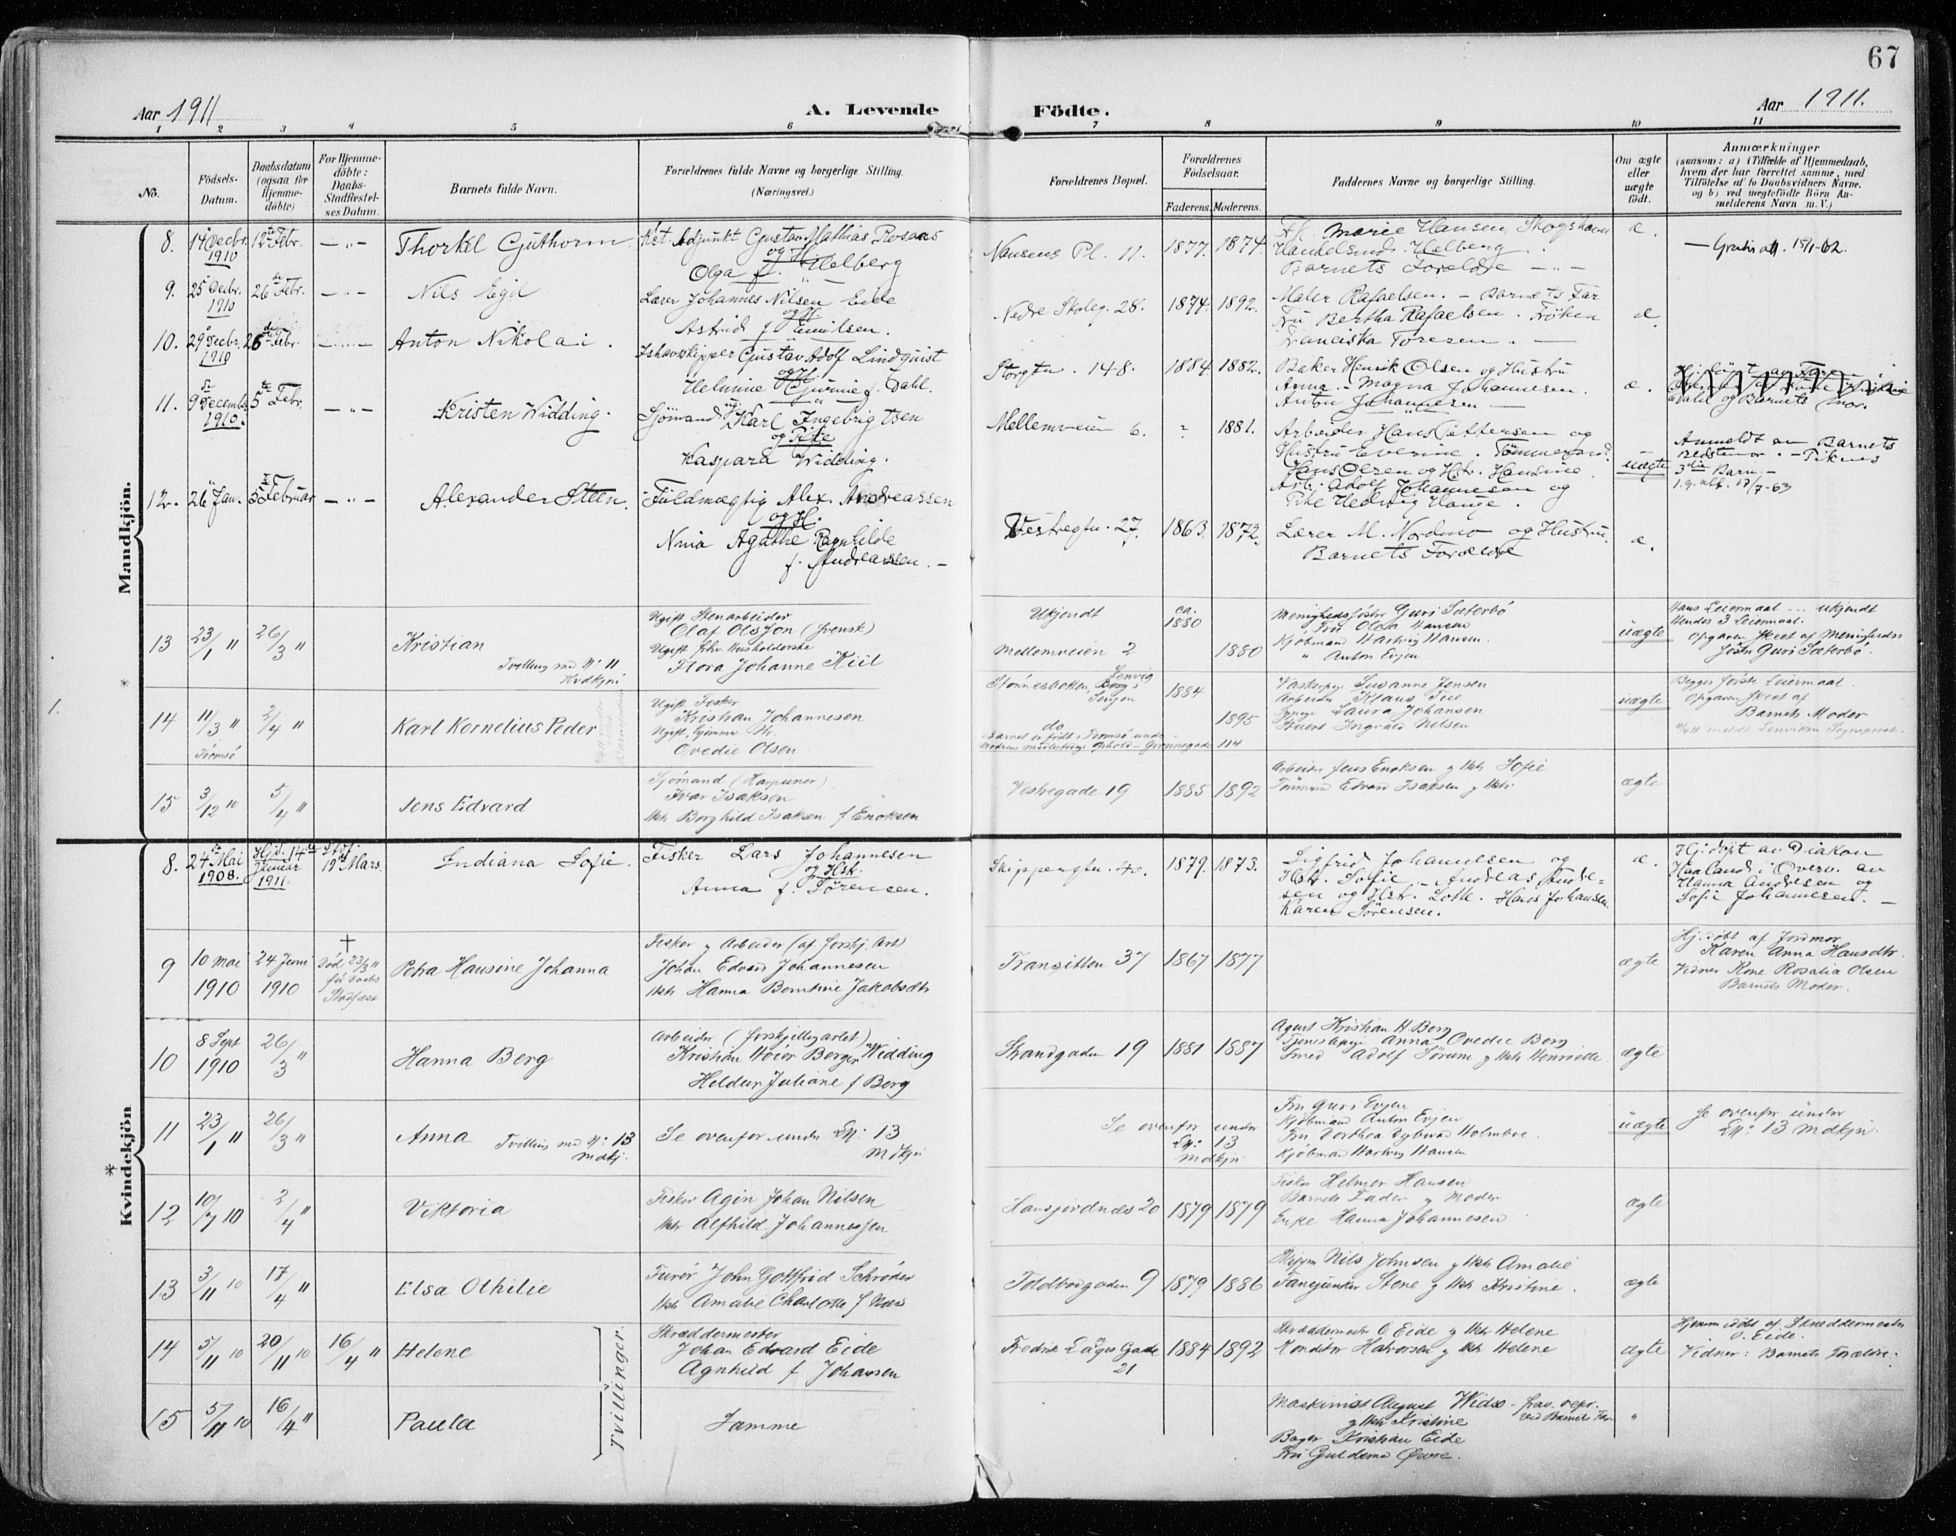 67
Aar 1911
A. Levende
Födte.
Aar 1911.
1 2 3 4 5 6 7 8 9 10 11
No.
Födsels-
Datum.
Daabsdatum
(ogsaa for
Hjemme-
döbte)
For Hjemme-
döbte:
Daabs-
Stadfæstel-
ses Datum.
Barnets fulde Navn.
Forældrenes fulde Navne og borgerlige Stilling.
(Næringsvei.)
Forældrenes Bopæl.
Forældrenes
Födselsaar.
Faderens. Moderens.
Faddernes Navne og borgerlige Stilling.
Om ægte
eller
uægte
födt.
Anmærkninger
(saasom: a) i Tilfælde af Hjemmedaab,
hvem der har forrettet samme, med
Tilföielse af to Daabsvidners Navne,
og b) ved uegtefödte Börn An-
melderens Navn m. V.)
Mandkjön.
8. 14 Decbr. 1910 12 Febr. — " —
Thorkel Guthorm
Kst. Adjunkt Gustav Mathias
og H.
Olga f. Helberg
Nansens Pl. 11. 1877. 1874.
Marie Hansen,
Helberg.
Barnets Forældre — " —
æ.
9. 25 Decbr. 1910 26 Febr. — " —
Nils Egil
Lærer Johannes Nilsen Eide
og H.
Astrid f. Emilsen.
Nedre Skoleg. 28. 1874. 1892.
Maler Rafaelsen. — Barnets Far
Fru Bertha Rafaelsen. Frøken
Franciska Toresen. —
æ.
10. 29 Decbr. 1910 26 Febr. — " —
Anton Nikolai.
Ishavsskipper Gustav Adolf Lindquist
og H.
Helmine f. Dahl.
Storgtn. 148. 1884 1882.
Baker Henrik Olsen og Hustru
Anna. — Magna Johannesen.
Anton Johannesen —
æ.
og Barnets Mor.
11. 9 December 1910. 5 Febr. — " —
Kristen Widding.
Sjömand Karl Ingebrigtsen
og Pike
Kaspara Widding.
Mellemveien 6. ? 1881.
Arbeider Hans Pettersen og
Hustru
Hans Olsen og Hst. Hansine
Arb. Adolf Johannesen og
Pike Hedvig Hauge.
uægte
Anmeldt av Barnets
Bedstemor. — Pikens
3die Barn —
12. 26 Jan. 5 Februar — " —
Alexander Steen.
Fuldmægtig Alex. Andreassen
og H.
Nina Agathe Ragnhilde
f. Andreassen. —
Vestregtn. 27 1863. 1872.
Lærer M. Nordmo og Hustru.
Barnets Forældre
æ.
13 23/1 " 26/3 "
Kristian
Tvilling med No 11
Kvdkjøn
Ugift Stenarbeider
Olaf Olsson (svensk)
Ugift
Flora Johanne Kiil
Ukjendt ca. 1880
Mellemveien 2 1880
Menighedssøster Guri Sæterbø
Fru Olga Hansen
Kjøbmand Hartvig Hansen.
" Anton Evjen
uægte
Hans Leiermaal ... ukjendt
Hendes 3 Leiermaal.
Opgaven skeet af Menigheds-
søster Guri Sæterbø
14 11/3 " 2/4 "
Tromsø
Karl Kornelius Peder
Ugift Fisker
Kristian Johannesen
Ovedie Olsen
Stønnesbotten, Lenvig 1884
do 1895
Barnet er født i Tromsø under
Moderens midlertidige Ophold — Grønnegade 114
Vaskerpige Susanne Jensen
Arbeider Klaus
Laura Johansen
Ingvald Nilsen
uægte
Begges første Leiermaal.
Opgaven skeet af
Barnets Moder
15 3/12 10 5/4 "
Jens Edvard
Sjømand (Harpuner)
Ivar Isaksen
Hstr Borghild Isaksen f Enoksen
Vestregade 19 1885 1892
Arbeider Jens Enoksen og Hstr Sofie
Tømmermd Edvard Isaksen og Hstr
ægte
Kvindekjön
8. 24 Mai 1908. Hjd. 14de Januar 1911. Stdf. 19 Mars.
Indiana Sofie.
Fisker Lars Johannesen
og Hst.
Anna f. Sørensen.
Skippergtn. 40. 1879. 1873.
Sigfrid Johannesen og
Hst. Sofie — Andreas Andre-
sen og Hst. Lotte. Hans Johansen
Karen Sørensen.
æ.
Hj. døpt av Diakon
Haaland i Overv. av
Hanna Andresen og
Sofie Johannesen. —
9 10 Mai 1910 24 Juni 1910
† Død 23/3 "
før Daabs
Stadfæst
Petra Hansine Johanna
Fisker og Arbeider (af forskj. Art)
Johan Edvard Johannesen
Hstr Hanna Berntine Jakobsdtr
Transitten 37 1867 1877
ægte
Hj. døbt af Jordmor
Karen Anna Hansdtr.
Vidner Kone Rosalia Olsen
Barnets Moder.
10 8 Sept 1910 26/3 "
Hanna Berg
Arbeider (forskjellig artet)
Kristian Høier Berger Widding
Heldur Juliane f Berg
Strandgaden 19 1881 1887
Agent Kristian H. Berg
Tjenestepige Anna Ovedie Berg
Smed Adolf Sørum og Hstr Henriette
ægte
11 23/1 " 26/3 "
Anna Tvilling med No: 13
Mdkj.
Se ovenfor under No: 13
Mdkjn
Se ovenfor under
No: 13
Mdkjn
Fru Guri Evjen
Kjøbmand Anton Evjen
Fru Dorthea Holmboe
Kjøbmd Hartvig Hansen
uægte
Se ovenfor under
No: 13 Mdkjn.
12 10/7 10 2/4 "
Viktoria
Fisker Agin Johan Nilsen
Hstr Alfhild Johannessen
Hansjordnæs 20 1879 1879
Fisker Helmer Hansen
Barnets Fader og Moder
Enke Hanna Johannesen
ægte
13 3/11 10 17/4 "
Elsa Othilie
John Gottfrid Schrøder
Hstr Amalie Charlotte f
Toldbodgaden 9 1879 1886
Skipper Nils Johnsen og Hstr Amalie
Fanejunker Stene og Hstr Kristine.
ægte
14 5/11 10 20/11 10 16/4 "
Helene
Tvillinger.
Skræddermester
Johan Edvard Eide
Agnhild f Johansen
Fredrik Langes Gade 21 1884 1892
Skræddermstr O Eide og Hstr Helene
Konditor Halvorsen og Hstr Helene
ægte
Hjemmedøbt af Skræddermester
O. Eide.
Vidner: Barnets Forældre.
15 5/11 10 16/4 "
Paula
Samme
Maskinist August Widsø — frav. repr.
og Hstr Kristine ved Barnets Far
Bager Kristian Eide
"